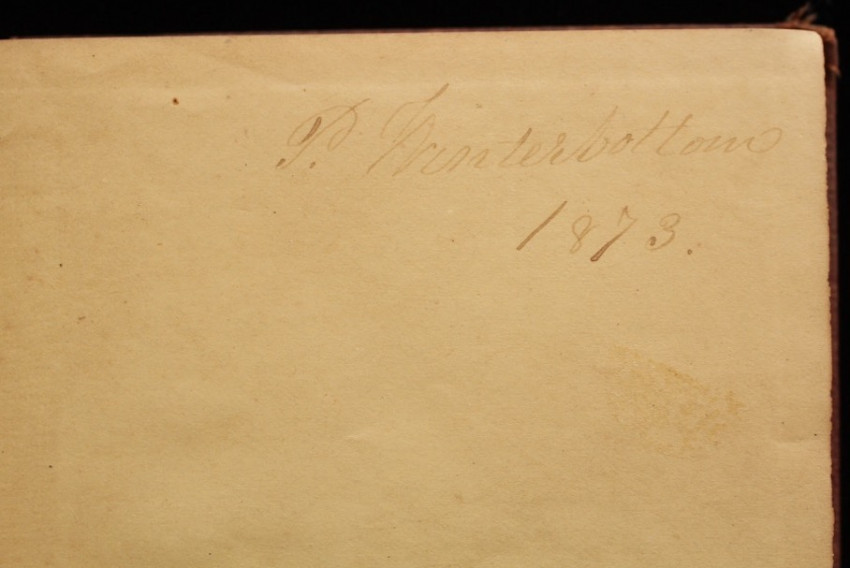 P. Winterbottom
1873.